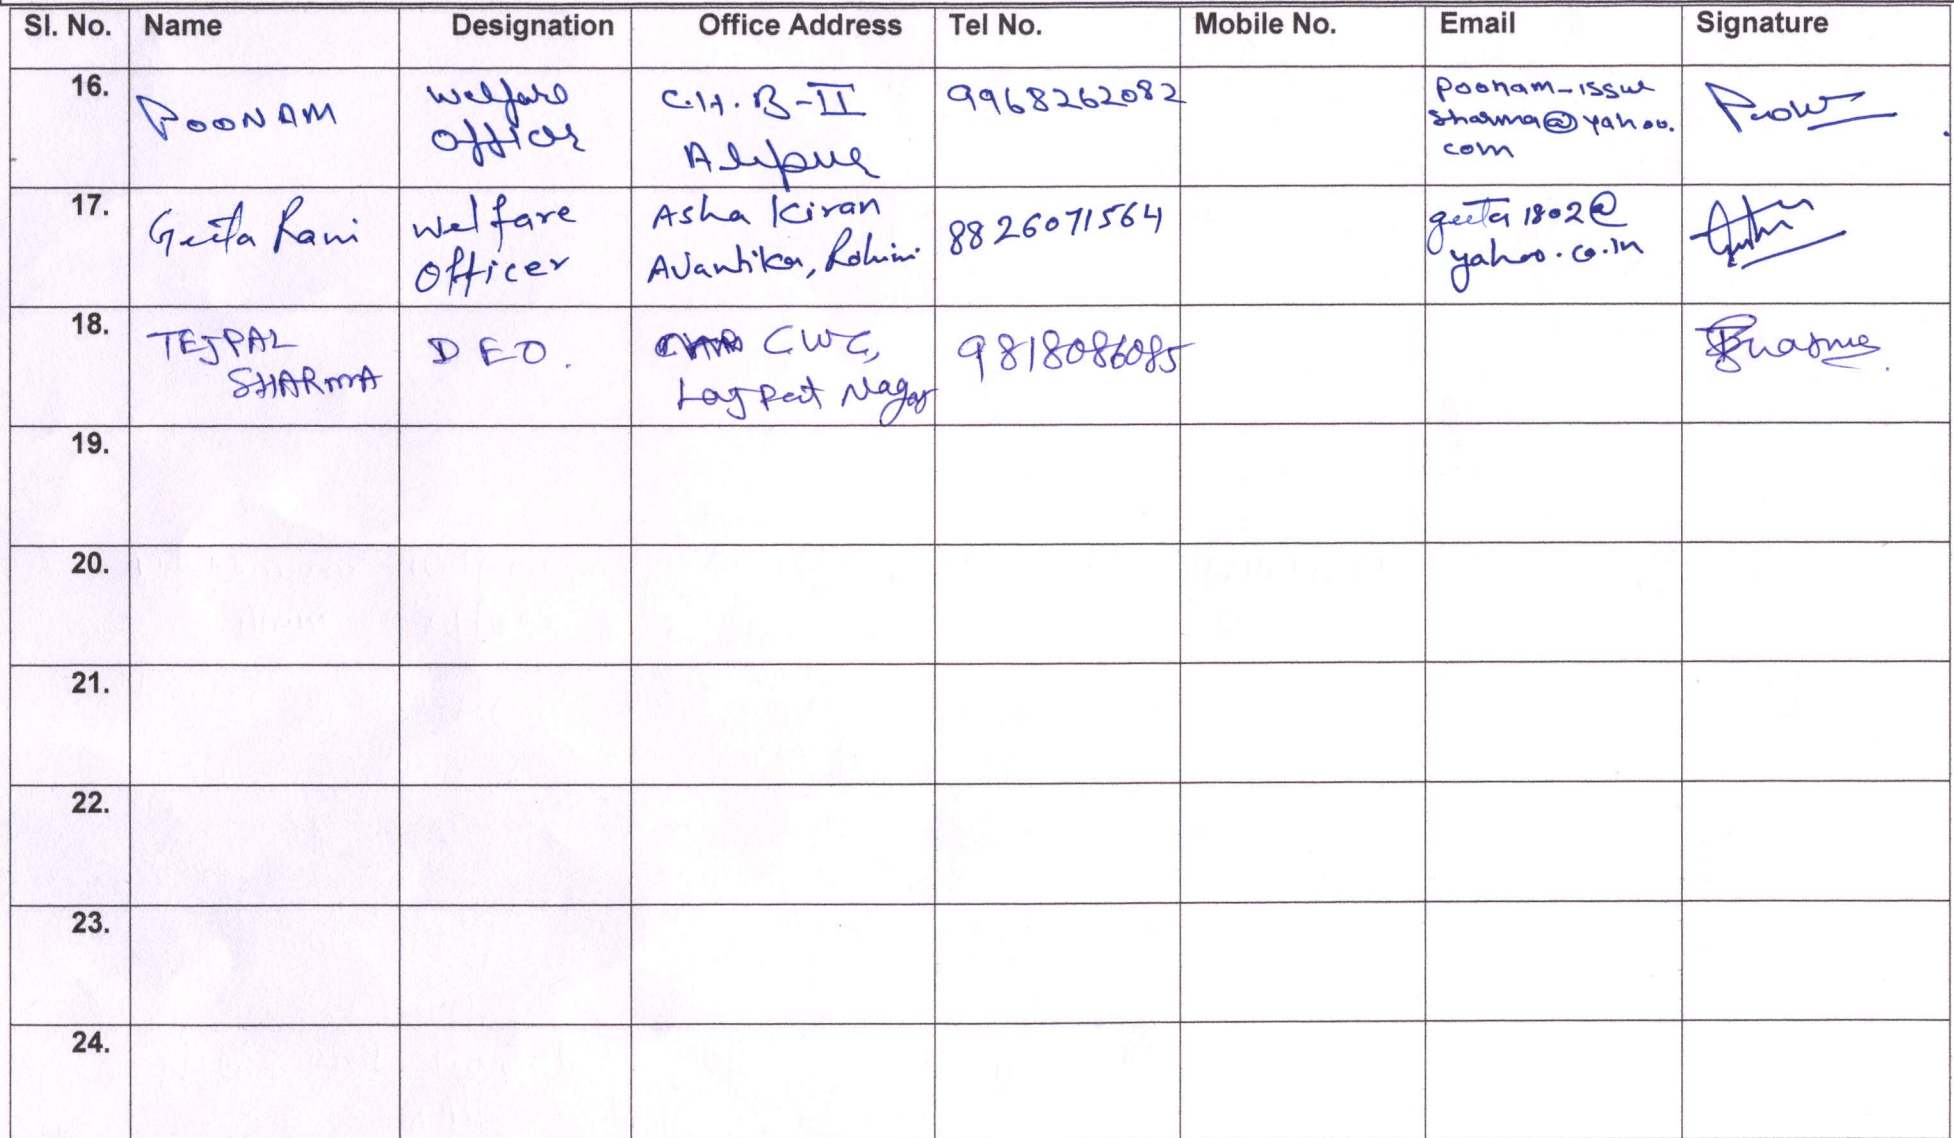 Sl. No. Name Designation Office Address Tel No. Mobile No. Email Signature
16. POONAM welfare officer C.H.B-II Alipur 9968262082 sharma@yahoo.com
17. Geeta Rani welfare officer Asha Kiran Avantika, Rohini 8826071564 geeta1802@yahoo.co.in
18. TEJPAL SHARMA DEO. CWC, Lajpat Nagar 9818086085
19.
20.
21.
22.
23.
24.